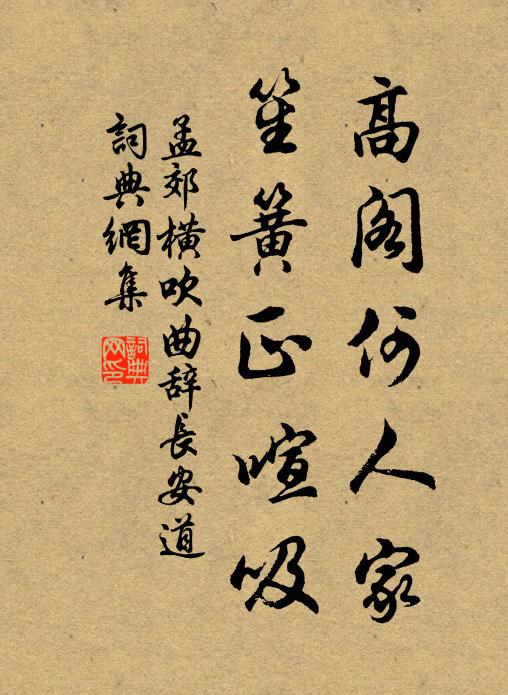 高閣何人家
笙簧正喧吸
孟郊橫吹曲辞長安道
詞典網集
詞典网印